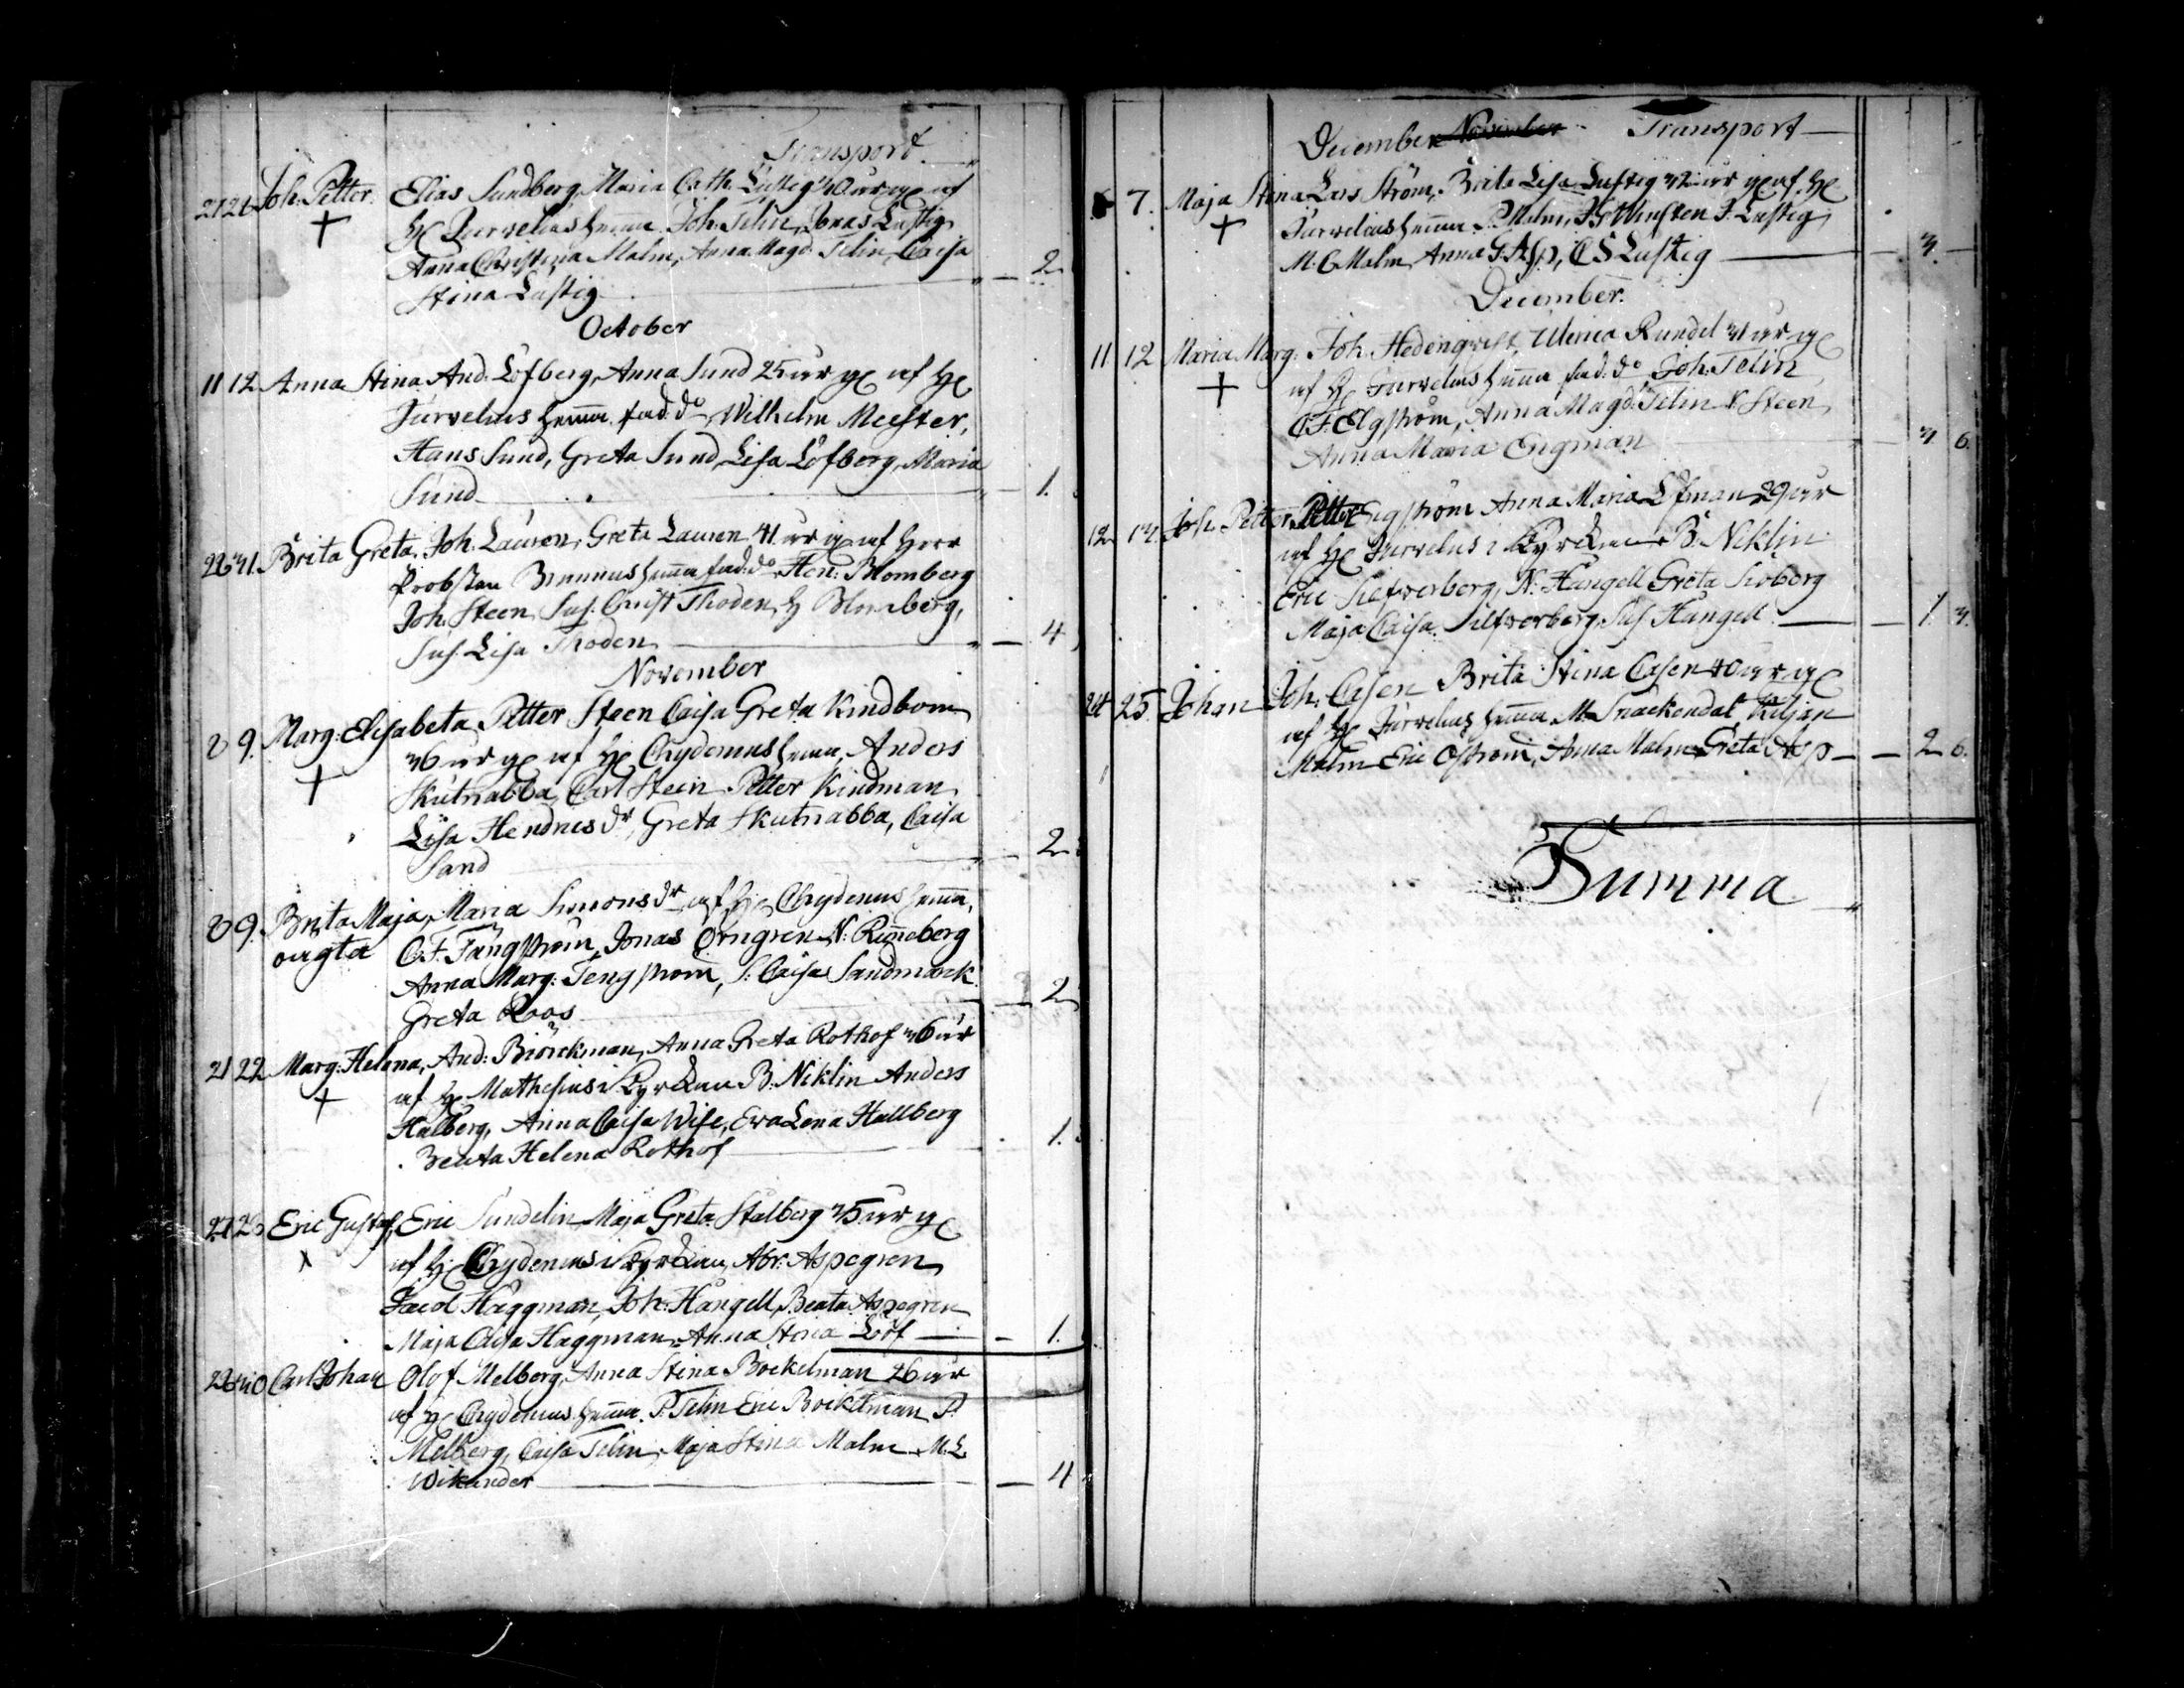 Transport
21 21 Joh: Petter. Elias Sundberg, Maria Cath. Lustig 40 år gl af
H: Jurvelius hemma. Joh: Telin, Jonas Lustig
Anna Christina Malm, Anna Magd: Telin, Caisa
Stina Lustig — 2
October
11 12 Anna Stina And: Löfberg, Anna Sund 25 år gl af H:
Jurvelius hemma fad: do Wilhelm Meester,
Hans Sund, Greta Sund, Lisa Löfberg, Maria
Sund — 1.
Brita Greta, Joh. Lauren, Greta Lauren 41 år gl af Herr
Probsten hemma fad: do Hen: Blomberg
Joh. Steen, Sus: Christ Thoden, H Blomberg,
Sus. Lisa Thoden — 4
November
8 9. Marg: Elisabeta, Petter Steen Caisa Greta Kindbom
36 år gl af H: Chydenius hemma, Anders
Skutnabba, Carl Steen Petter Kindman
Lisa Hendricsdr, Greta Skutnabba, Caisa
Sand — 2
8 9. Brita Maja, Maria Simonsdr af H: Chydenius hemma,
oägta C. F. Tängström, Jonas Örngren N: Rinneberg
Anna Marg: Tengström, S: Caisa Sandmark
Greta Roos — 2
21 22 Marg: Helena, And: Biörckman, Anna Greta Rothof 36 år
af H: Mathesius i Kyrckan B: Niklin Anders
Halberg, Anna Caisa Wife, Eva Lena Hallberg
Beata Helena Rothof — 1.
Eric Gustaf, Eric Sundelin, Maja Greta Stalberg 35 år gl
af H: Chydenius i Kyrckan, Abr: Aspegren
Jacob Häggman, Joh: Hangell, Beata Aspegren
Maja Caisa Häggman, Anna Stina Löf — 1.
Carl Johan Olof Melberg, Anna Stina Böckelman 26 år
af H: Chydenius hemma. P: Telin Eric Böckelman P.
Melberg, Caisa Telin, Maja Stina Malm M. L.
Wikander — 4
December November Transport
7. Maja Stina Lars Ström, Brita Lisa Lustig 32 år gl af H:
Jurvelius hemma. P. Malm, J. Lustig,
M. C Malm, Anna G Asp, C S Lustig — 3
December.
11 12 Maria Marg: Joh. Hedenqvist, Ulrica Rundel 31 år gl
af H: Jurvelius hemma fad: do Joh: Telin
C. F. Elgström, Anna Magd: Telin Steen
Anna Maria Engman — 3 6.
12 13 Joh. Petter, Petter Engström Anna Maria Löfman 29 år
af H: Jurvelius i Kyrckan B: Niklin
Eric Silfverberg, N: Hangell Greta Sioberg
Maja Caisa Silfverberg Sus. Hangell — 1 3.
24 25 Johan Joh. Casen Brita Stina Casen 40 år gl
af H: Jurvelius hemma. M: Snackendal Kiljan
Malm Eric Öström, Anna Malm Greta Asp — 2 6.
Summa